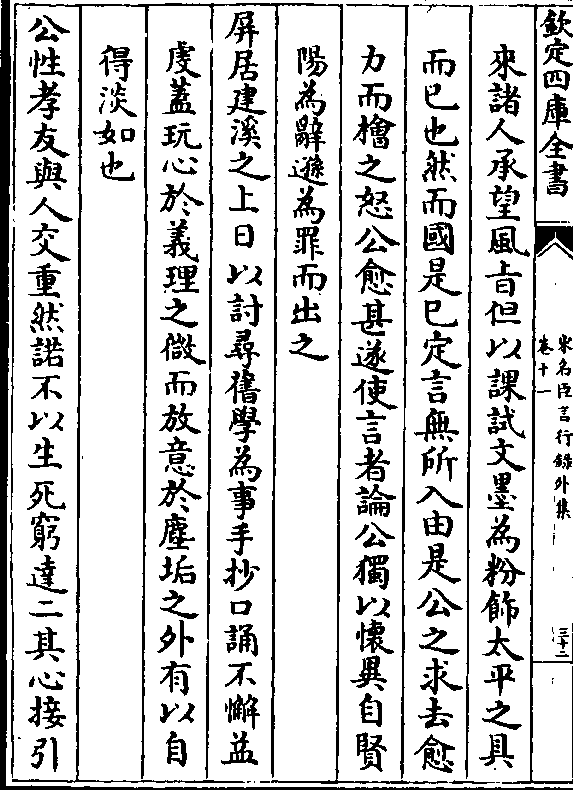 欽定四庫全書
宋名臣言行錄外集
卷十一
三十二
來諸人承望風旨但以課試文墨為粉飾太平之具
而已也然而國是已定言無所入由是公之求去愈
力而檜之怒公愈甚遂使言者論公獨以懷異自賢
陽為辭遜為罪而出之
屏居建溪之上日以討尋舊學為事手抄口誦不懈益
虔蓋玩心於義理之微而放意於塵垢之外有以自
得淡如也
公性孝友與人交重然諾不以生死窮達二其心接引